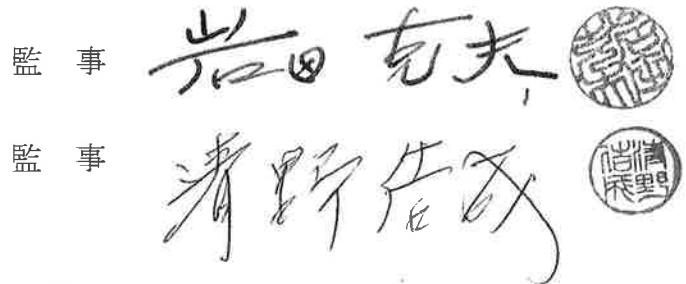 監事 岩田克夫
監事 清野佶成